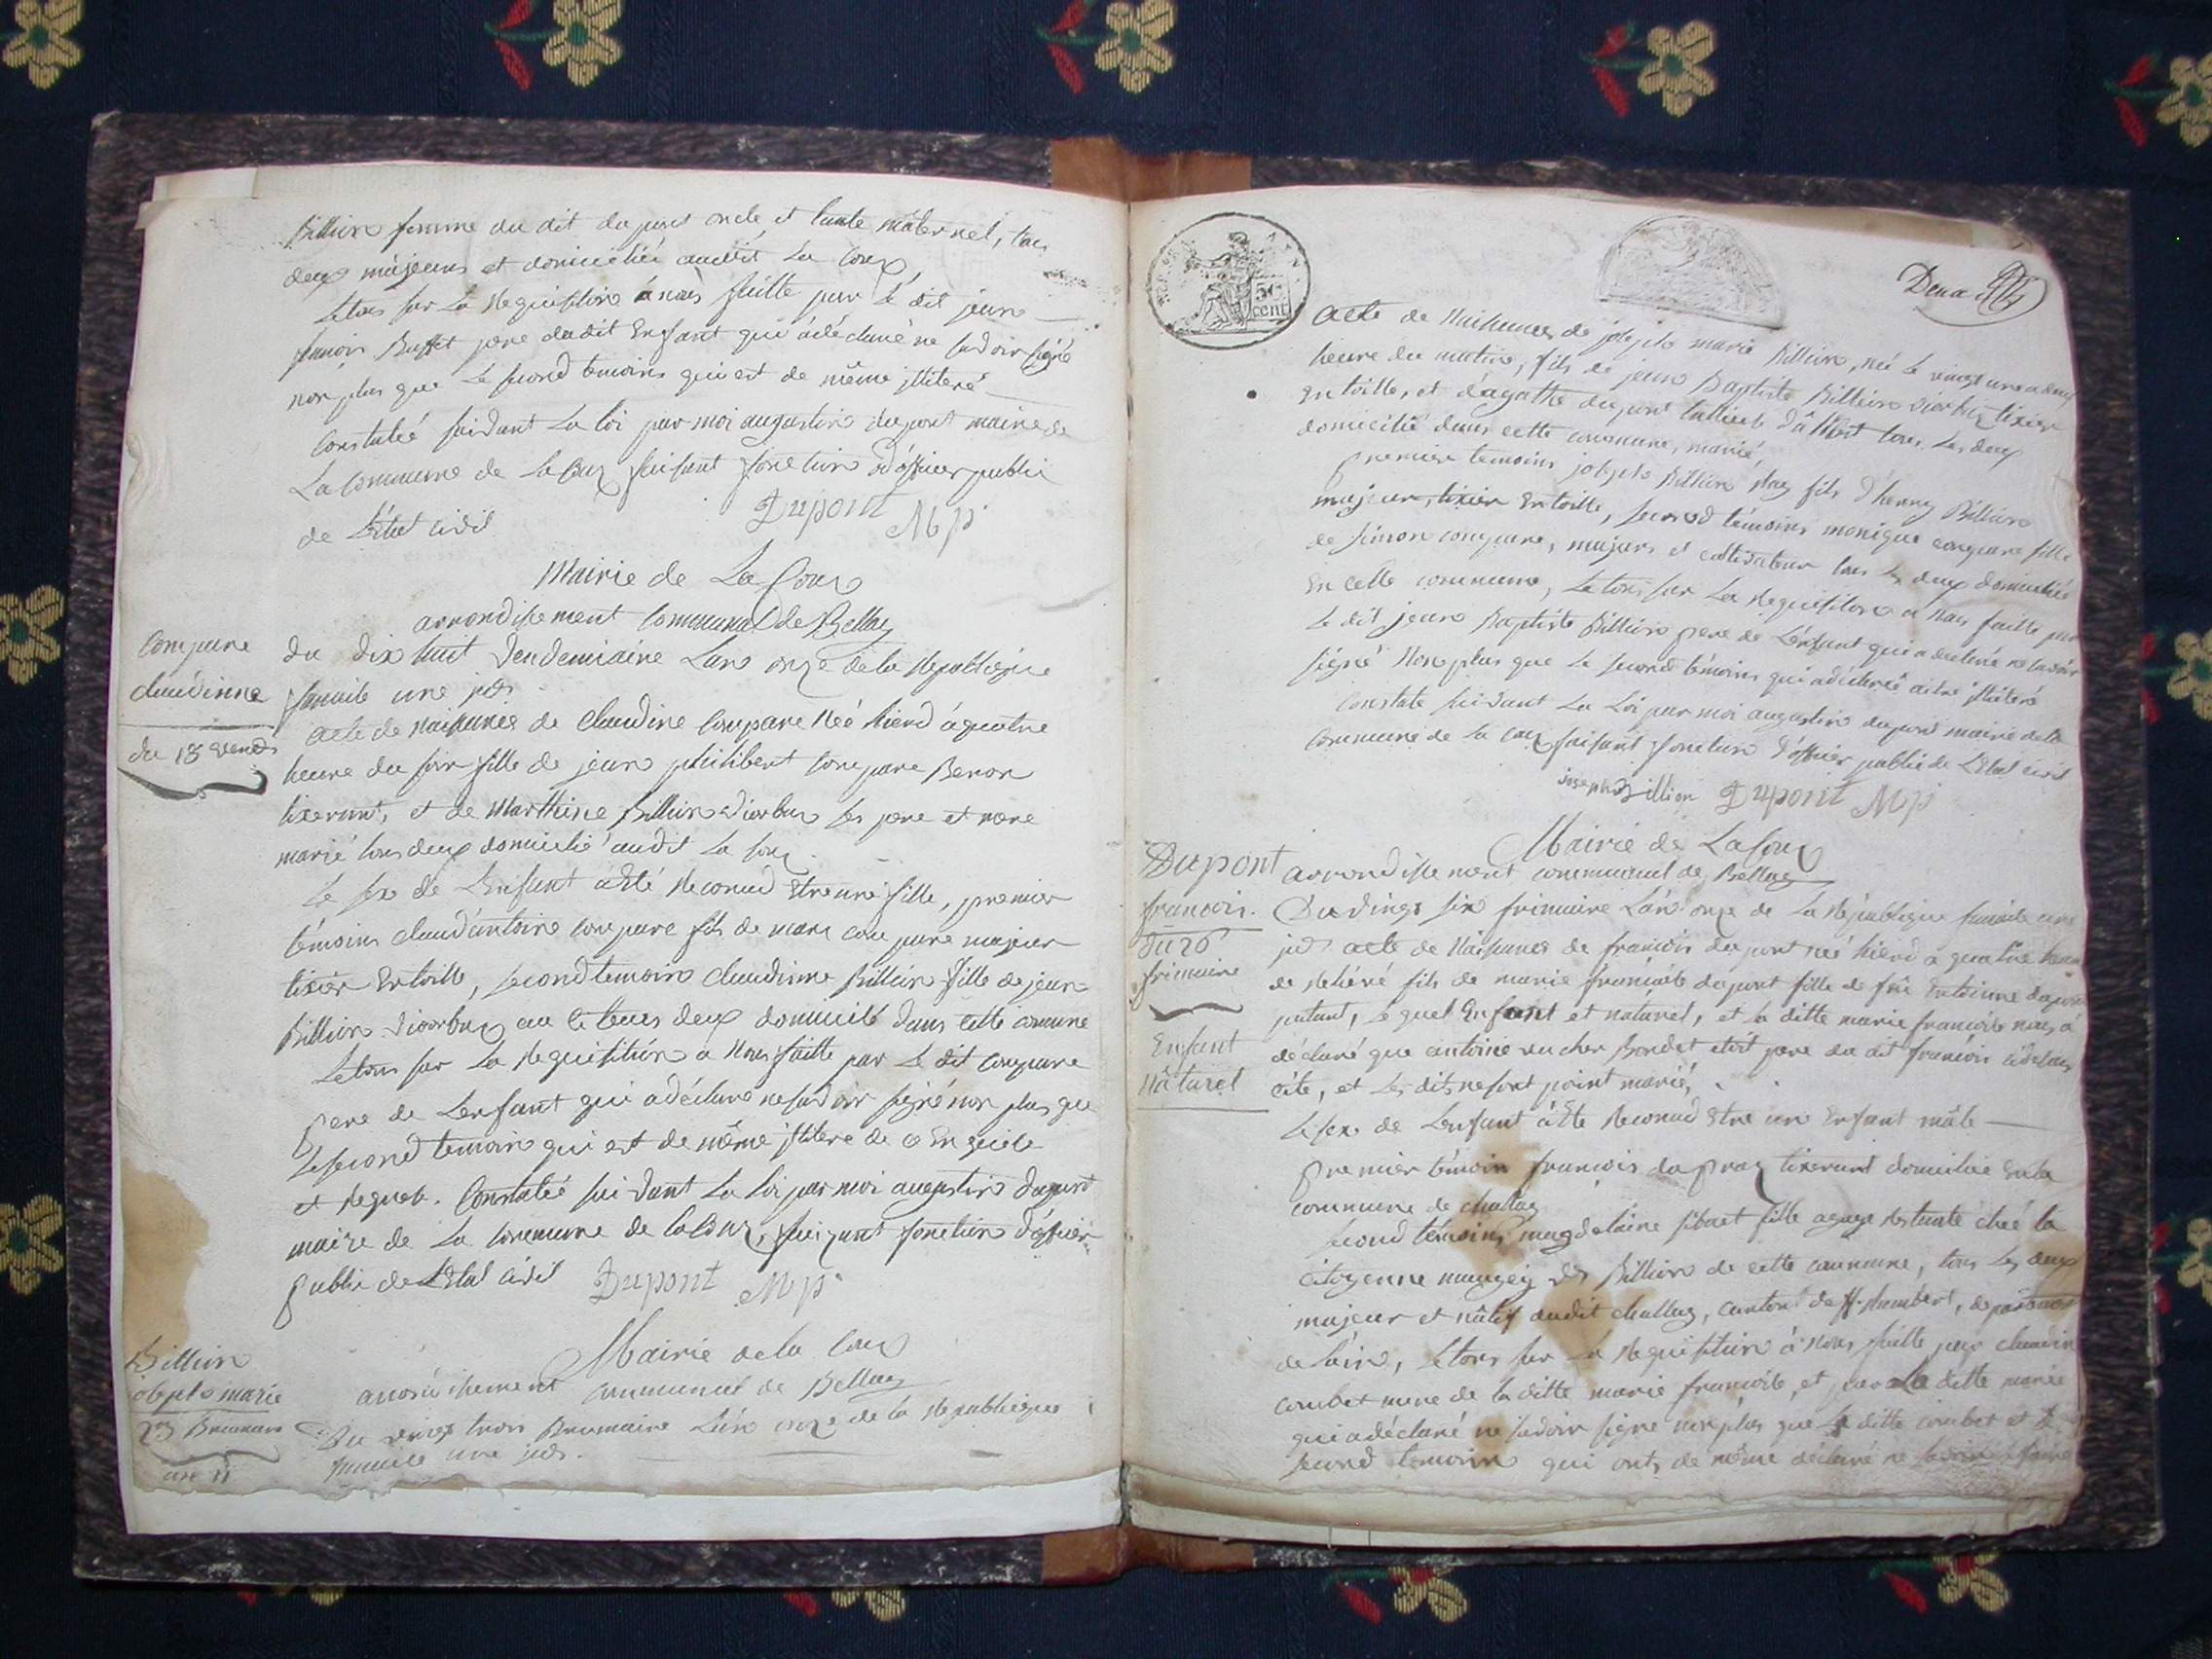 Billion femme du dit dupont oncle et tante maternel, tous
deux majeurs et domicilié audit La Coux,
Letous sur La Requisition à nous faitte par Le dit jean
franois Buffet pere dudit Enfant qui à déclaré ne savoir signé
non plus que Le second temoins qui est de même illiteré
Constaté suivant La loi par moi augustin dupont maire de
La Commune de La Coux faisant fonction d'officier public
de L'état civil
Dupont Mp
Mairie de La Coux
arrondissement Communal de Belley
Compare
claudinne
du 18 vend
du dix huit Vendemiaire Lan onze de la Republique
francaise une jndi
acte de naissance de claudine Compare Née hierd à quatre
heure du soir fille de jean philibert Compare Benon
tixerant, et de Marthine Billion Diorbux ses pere et mere
marié tous deux domicilié audit La Coux
Le sex de L'Enfant à été Reconnud Etre une fille, premier
témoins claud antoine compare fils de marc compare majeur
tixier En toille, second temoin claudinne Billion fille de jean
Billion Diorbux au tetous deux domicilé dans cette comune
Letous sur La Requisition à Nous faitte par Le dit Compare
pere de Lenfant qui a déclaré ne savoir signé non plus que
Le second temoin qui est de même illiteré de ce Enquie
et Requete. Constatée suivant La loi par moi augustin dupont
maire de La Commune de la Coux, faizant fonction d'officier
public de L'Etat civil Dupont Mp
Mairie de la Coux
Billion
joseph marie
23 Brumaire
an 11
arrondissement communal de Belley
Du vingt trois Brumaire Lan onze de la Republique
francaise une jndi.
Deux
30
cent
acte de Naissance de joseph marie Billion, né le vingt une a deux
heure du matin, fils de jean Baptiste Billion Diorbux tixier
En toille, et d'agathe dupont tous Les deux
domicilié dans cette commune, marié,
premier temoins joseph Billion fils d'henry Billion
majeur, tixier En toille, second témoins monique compare fille
de Simon compare, majeurs et cultivateur tous Les deux domicilié
En cette commune, Letous sur La Requisition à nous faitte par
Le dit jean Baptiste Billion pere de L'enfant qui a déclaré ne savoir
signé Non plus que Le second témoins qui a déclaré aitre illiteré
Constaté suivant La Loi par moi augustin dupont maire de la
Commune de la Coux faisant fonction d'officier public de L'Etat civil
joseph Billion Dupont Mp
Mairie de La Coux
Dupont
francois.
Du 26
frimaire
Enfant
Nâturel
arrondissement communal de Belley
Du vingt six frimaire L'an onze de La République francaise une
jndi acte de Naissance de francois dupont né hierd a quatre heure
de Relevé fils de marie francoise dupont fille de feu Entoinne dupont
, Lequel Enfant et naturel, et la ditte marie francoise nous à
déclaré que antoine Bordet etoit pere du dit francois
cite, et Les dits ne sont point marié,
Le sex de L'enfant à été Reconnud Etre un Enfant mâle
premier témoin francois du praz tixerant domicilié En la
commune de challey
second témoins magdelaine fille agagé Restante cheé la
citoyenne Billion de cette commune, tous Les deux
majeur et nâtif audit challey, canton de St. Rambert, departement
de Lain, Letous sur La Requisition à Nous faitte par
combet mere de la ditte marie francoise, et par La ditte marie
qui a déclaré ne savoir signé non plus que La ditte combet et Le
second temoin qui onts de même déclaré ne savoir